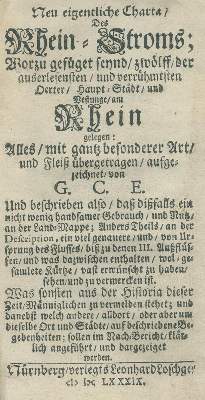 Neu eigentliche Charta/
Des
Rhein-Stroms;
Worzu gefüget seynd/ zwölff/ der
außerlesensten/ und verrühmtsten
Oerter/ Haupt-Städt/ und
Vestunge/ am
Rhein
gelegen:
Alles/ mit gantz besonderer Art/
und Fleiß übergetragen/ aufge-
zeichnet/ von
G. C. E.
Und beschrieben also/ daß dißfalls ein
nicht wenig handsamer Gebrauch/ und Nutz/
an der Land-Mappe; Anders Theils/ an der
Description, ein viel genauere/ und/ von Ur-
sprung des Flusses/ biß zu denen III. Außflüs-
sen/ und was dazwischen enthalten/ wol-ge-
samlete Kürtze/ vast erwünscht zu haben/
sehen/ und zu vermercken ist.
Was sonsten aus der Historia dieser
Zeit/ Männiglichen zu vermelden stehet; und
danebst welch andere/ alldort/ oder aber um
dieselbe Ort und Städte/ auf beschriebene Be-
gebenheiten; sollen im Nach-Bericht/ klär-
lich angeführt/ und dargezeiget
werden.
Nürnberg/ verlegts Leonhard Loschge/
cIɔ Iɔc LXXXIX.